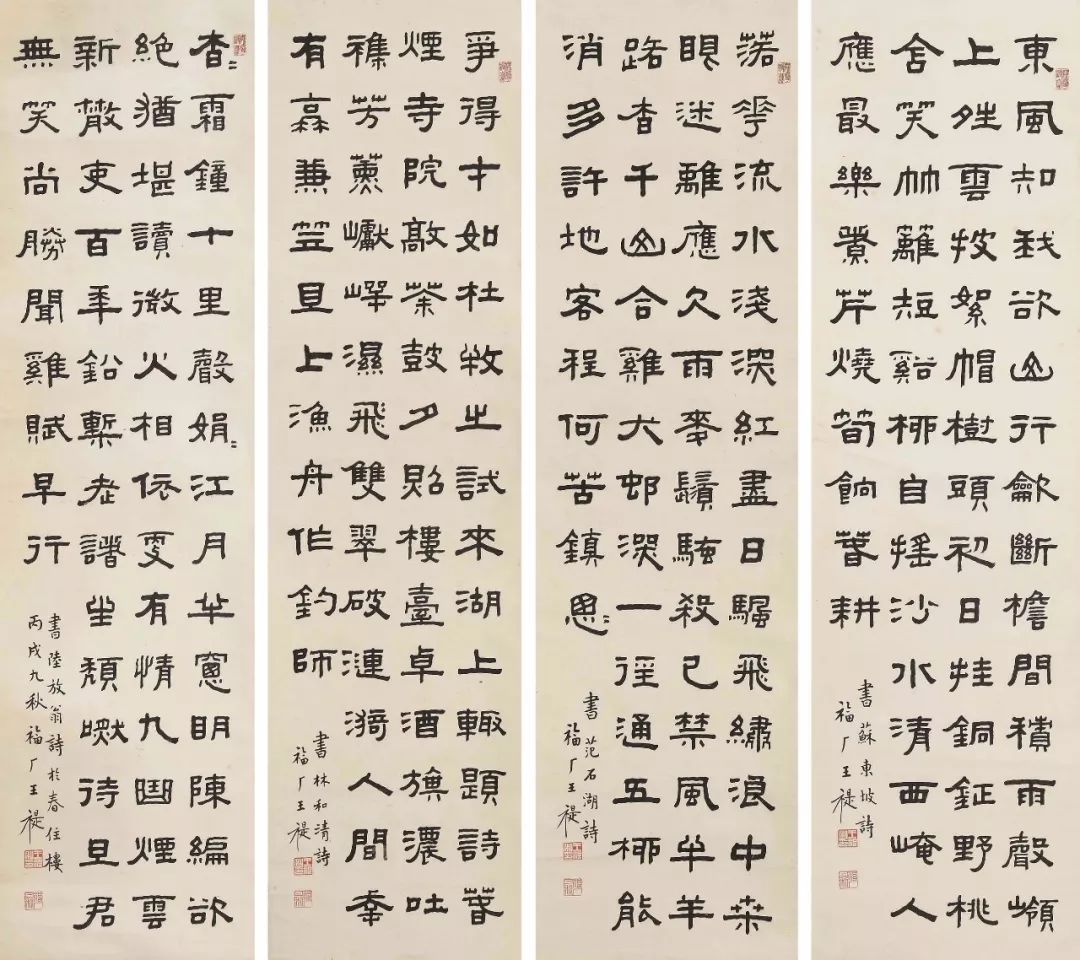 東風知我欲山行龡斷檐間積雨聲嶺
上夝雲披絮帽樹頭初日挂銅鉦野桃
含笑竹籬短谿柳自搖沙水清西崦人
應最樂煑芹燒筍餉春耕
書蘇東坡詩
福厂王褆
落花流水淺深紅盡日驅飛繡浪中桑
眼迷離應欠雨麥鬚騷殺已禁風牛羊
路杳千山合雞犬邨深一徑通五柳能
消多許地客程何苦鎮悤〻
書范石湖詩
福厂王褆
爭得才如杜牧之試來湖上輒題詩春
煙寺院敲茶鼓夕照樓臺卓酒旗濃吐
襍芳薰巘崿濕飛雙翠破漣漪人間幸
有蓑兼笠且上漁舟作釣師
書林和清詩
福厂王褆
杳〻霜鐘十里聲娟〻江月半窗明陳編欲
絕猶堪讀微火相依更有情九曲煙雲
新散吏百年鉛槧老諸生頹嘫待旦君
無笑尚勝聞雞賦早行
書陸放翁詩於春住樓
丙戌九秋福厂王褆